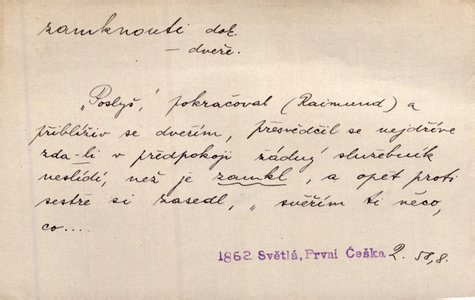 zamknouti dok.
– dveře.
„Poslyš,“ pokračoval (Raimund) a
přiblíživ se dveřím, přesvědčil se nejdříve
zda-li v předpokoji žádný služebník
neslídí, než je zamkl, a opět proti
sestře si zasedl, „svěřím ti něco,
co....
1862 Světlá, První Češka 2. 58,8.